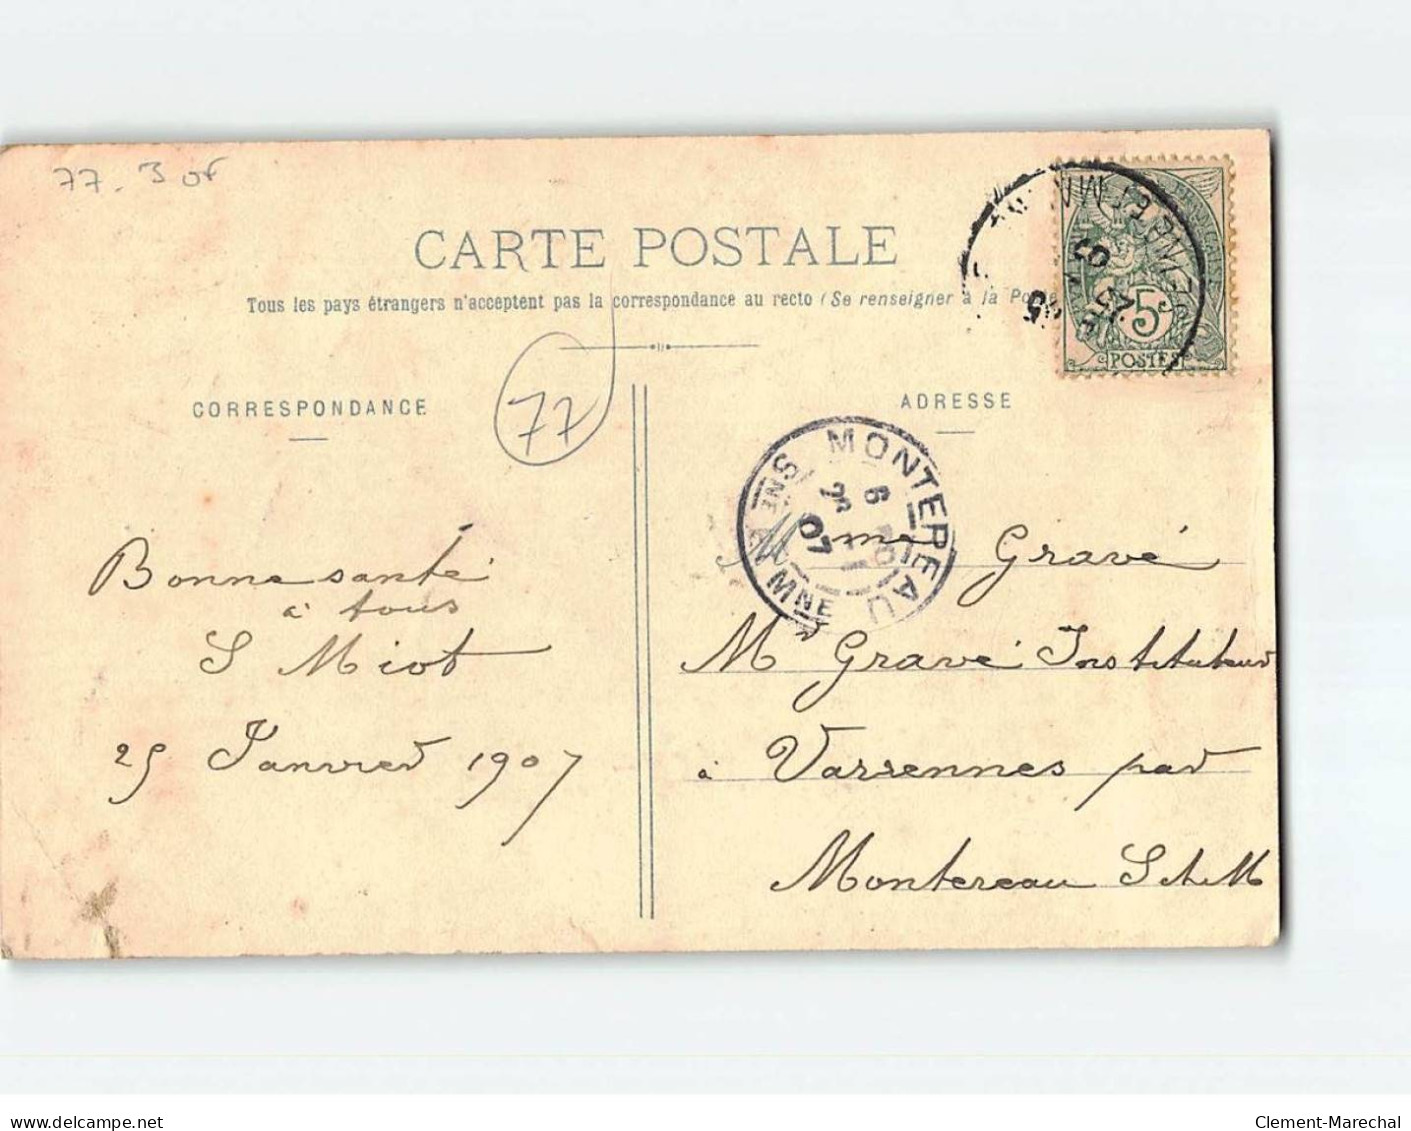 77. 3 of
CARTE POSTALE
Tous les pays étrangers n'acceptent pas la correspondance au recto (Se renseigner à la Po
CORRESPONDANCE
77
ADRESSE
5c
POSTES
MONTEREAU
SNE & MNE
6
07
Bonne santé
à tous
S Miot
25 Janvier 1907
me Gravé
Mr Gravé Instituteur
à Varennes par
Montereau S et M
delcampe.net
Clement-Marechal